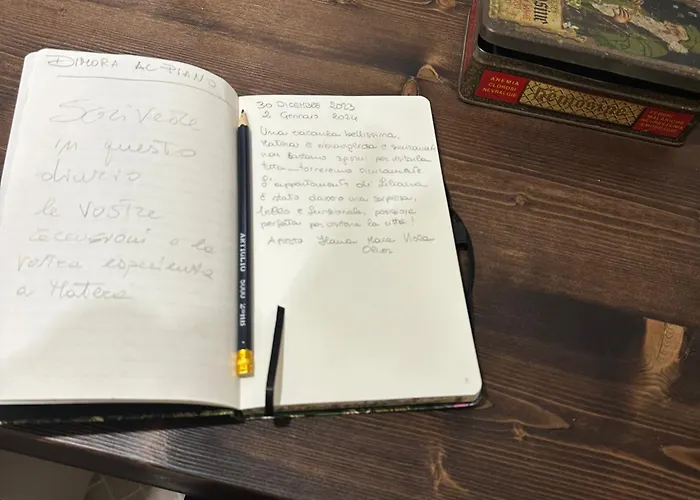 DIMORA AL PIANO
Scrivete
in questo
diario
le vostre
recensioni e la
vostra esperienza
a Matera
30 DICEMBRE 2023
2 GENNAIO 2024
Una vacanza bellissima,
Matera è meravigliosa e
non bastano giorni per visitarla
tutta torneremo sicuramente
L'appartamento di Liliana
È stato davvero una sorpresa,
bello e funzionale, posizione
perfetta per visitare la città!
ARTIGLIO 5000 2=HB
ANEMIA
CLOROSI
NEVRALGIE